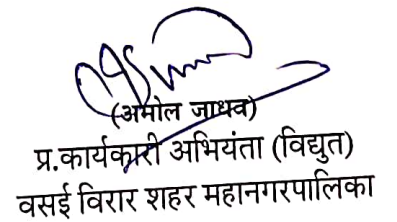 (अमोल जाधव)
प्र.कार्यकारी अभियंता (विद्युत)
वसई विरार शहर महानगरपालिका